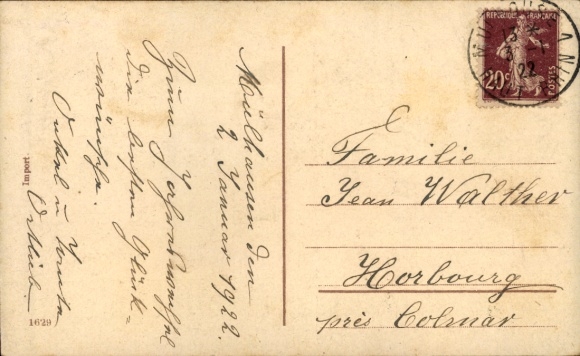 Mülhausen den
2 Januar 1922.
Zum Jahreswechsel
die besten Glück-
wünsche.
Onkel u Tante
Import
1629
RÉPUBLIQUE FRANÇAISE
20c
POSTES
22
Familie
Jean Walther
Horbourg
près Colmar